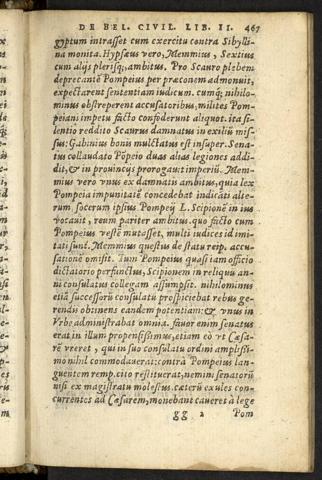 DE BEL. CIVIL. LIB. II. 467
gyptum intrasset cum exercitu contra Sibylli-
na monita. Hypsæus vero, Memmius, Sextius
cum alijs plerisq;, ambitus. Pro Scauro plebem
deprecantē Pompeius per præconem admonuit,
expectarent sententiam iudicum. cumq́; nihilo-
minus obstreperent accusatoribus, milites Pom-
peiani impetu facto confoderunt aliquot. ita si-
lentio reddito Scaurus damnatus in exiliū mis-
sus: Gabinius bonis mulctatus est insuper. Sena-
tus collaudato Pōpeio duas alias legiones addi-
dit, & in prouincijs prorogauit imperiū. Mem-
mius vero vnus ex damnatis ambitus, quia lex
Pompeia impunitatē concedebat indicāti alte-
rum, socerum ipsius Pompeij L. Scipionē in ius
vocauit, reum pariter ambitus. quo facto cum
Pompeius vestē mutasset, multi iudices id imi-
tati sunt. Memmius questus de statu reip. accu-
sationē omisit. Tum Pompeius quasi iam officio
dictatorio perfunctus, Scipionem in reliquū an-
ni consulatus collegam assumpsit. nihilominus
etiā successorū consulatu prospiciebat rebus ge-
rendis obtinens eandem potentiam: & vnus in
Vrbe administrabat omnia. fauor enim senatus
erat in illum propensissimus, etiam eò vt Cæsa-
rē vererēt, qui in suo consulatu ordini amplissi-
mo nihil commodauerat: contrà Pompeius lan-
guentem remp. citò restituerat, nemini senatorū
nisi ex magistratu molestus. cæterū exules con-
currentes ad Cæsarem, monebant caueret à lege
gg 2 Pom